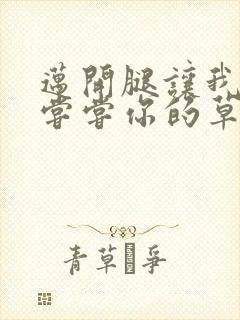 邁開腿讓我
嘗嘗你的草
青草 爭